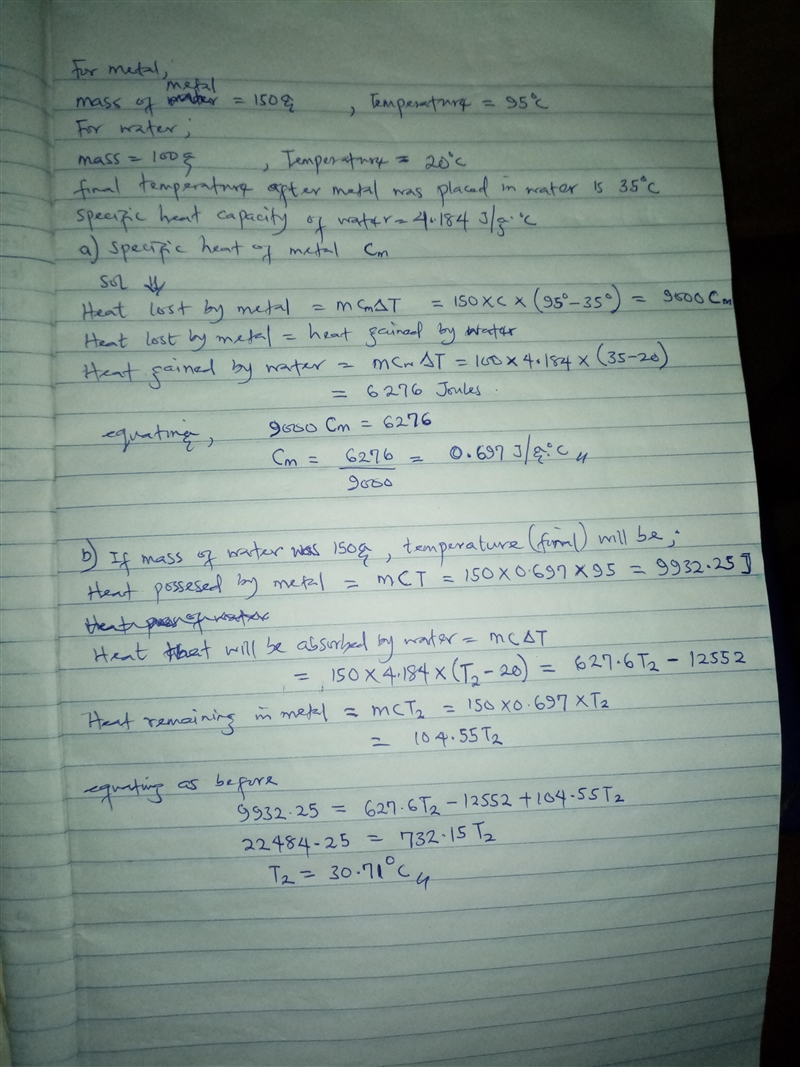 For metal,
metal
mass of = 150g , Temperature = 95°C
For water;
mass = 100g , Temperature = 20°C
final temperature after metal was placed in water is 35°C
Specific heat capacity of water = 4.184 J/g.°C
a) Specific heat of metal Cm
Sol
Heat lost by metal = mCmΔT = 150×C×(95°-35°) = 9000Cm
Heat lost by metal = heat gained by water
Heat gained by water = mCwΔT = 100×4.184×(35-20)
= 6276 Joules.
equating, 9000 Cm = 6276
Cm = 6276/9000 = 0.697 J/g.°C
b) If mass of water was 150g, temperature (final) will be;
Heat possesed by metal = mCT = 150×0.697×95 = 9932.25J
Heat that will be absorbed by water = mCΔT
= 150×4.184×(T₂-20) = 627.6T₂ - 12552
Heat remaining in metal = mCT₂ = 150×0.697×T₂
= 104.55T₂
equating as before
9932.25 = 627.6T₂ - 12552 + 104.55T₂
22484.25 = 732.15T₂
T₂ = 30.71°C